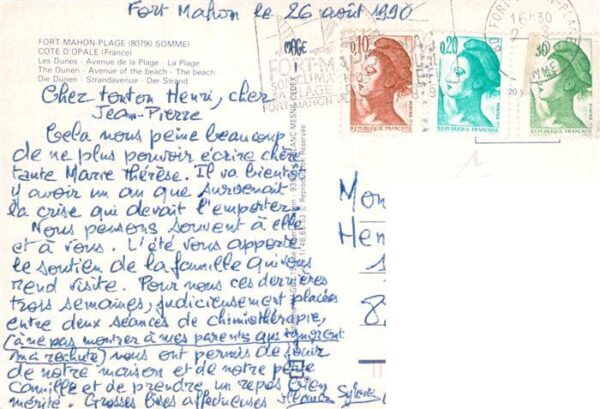 Fort Mahon le 26 août 1990
FORT-MAHON-PLAGE (80790 SOMME)
COTE D'OPALE (France)
Les Dunes - Avenue de la Plage - La Plage
The Dunen - Avenue of the beach - The beach
Die Dünen - Strandavenue - Die Strand
MAGE
FORT-MA
SON CLIMA
SA PLAGE
FORT-MAHON
16H30
0,10
RÉPUBLIQUE FRANÇAISE
0,20
RÉPUBLIQUE FRANÇAISE
30
RÉPUBLIQUE FRANÇAISE
Cher tonton Henri, cher
Jean-Pierre
Cela nous peine beaucoup
de ne plus pouvoir écrire chère
tante Marie Thérèse. Il va bientôt
y avoir un an que survenait
la crise qui devait l'emporter.
Nous pensons souvent à elle
et à vous. L'été vous apporte
le soutien de la famille qui vous
rend visite. Pour nous ces dernières
trois semaines, judicieusement placées
entre deux séances de chimiothérapie,
(à ne pas montrer à mes parents qui ignorent
ma rechute) nous ont permis de jouir
de notre maison et de notre petite
Camille et de prendre un repos bien
mérité. Grosses bises affectueuses
Sylvie
Reproduction Réservée
Mon
Hen
1
8